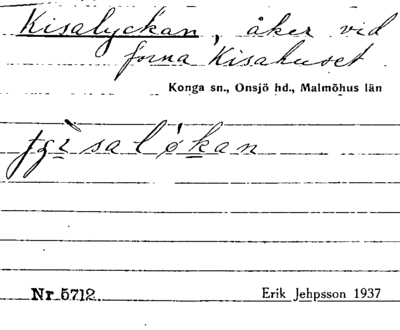 Kisalyckan, åker vid
forna Kisahuset.
Konga sn., Onsjö hd., Malmöhus län
tʃisaløkan
Nr 5712. Erik Jehpsson 1937